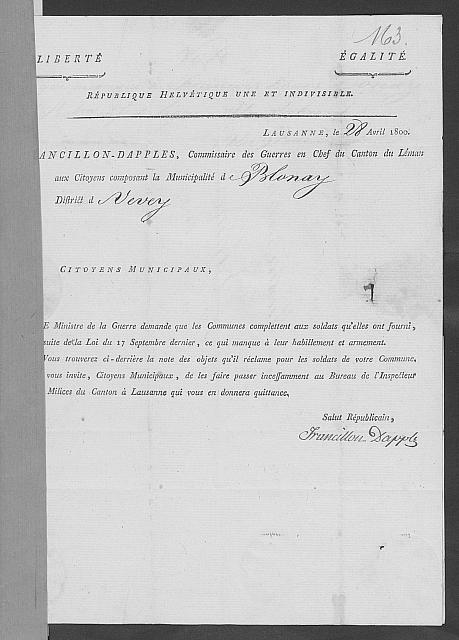 163.
LIBERTÉ ÉGALITÉ
RÉPUBLIQUE HELVÉTIQUE UNE ET INDIVISIBLE.
LAUSANNE, le 28 Avril 1800.
ANCILLON-DAPPLES, Commissaire des Guerres en Chef du Canton du Léman
aux Citoyens composant la Municipalité de Blonay
District d Vevey
CITOYENS MUNICIPAUX,
E Ministre de la Guerre demande que les Communes complettent aux soldats qu'elles ont fourni,
suite de la Loi du 17 Septembre dernier, ce qui manque à leur habillement et armement.
Vous trouverez ci-derrière la note des objets qu'il réclame pour les soldats de votre Commune,
vous invite, Citoyens Municipaux, de les faire passer incessamment au Bureau de l'Inspecteur
Milices du Canton à Lausanne qui vous en donnera quittance,
Salut Républicain,
Francillon Dapples